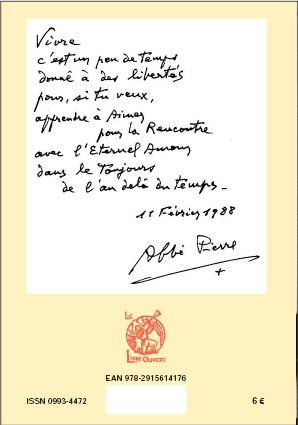 Vivre
c'est un peu de temps
donné à des libertés
pour, si tu veux,
apprendre à Aimer
pour la Rencontre
avec l'Eternel Amour
dans le Toujours
de l'au delà du temps_
11 Février 1988
Abbé Pierre
LE
LIVRE OUVERT
EAN 978-2915614176
ISSN 0993-4472
6 €